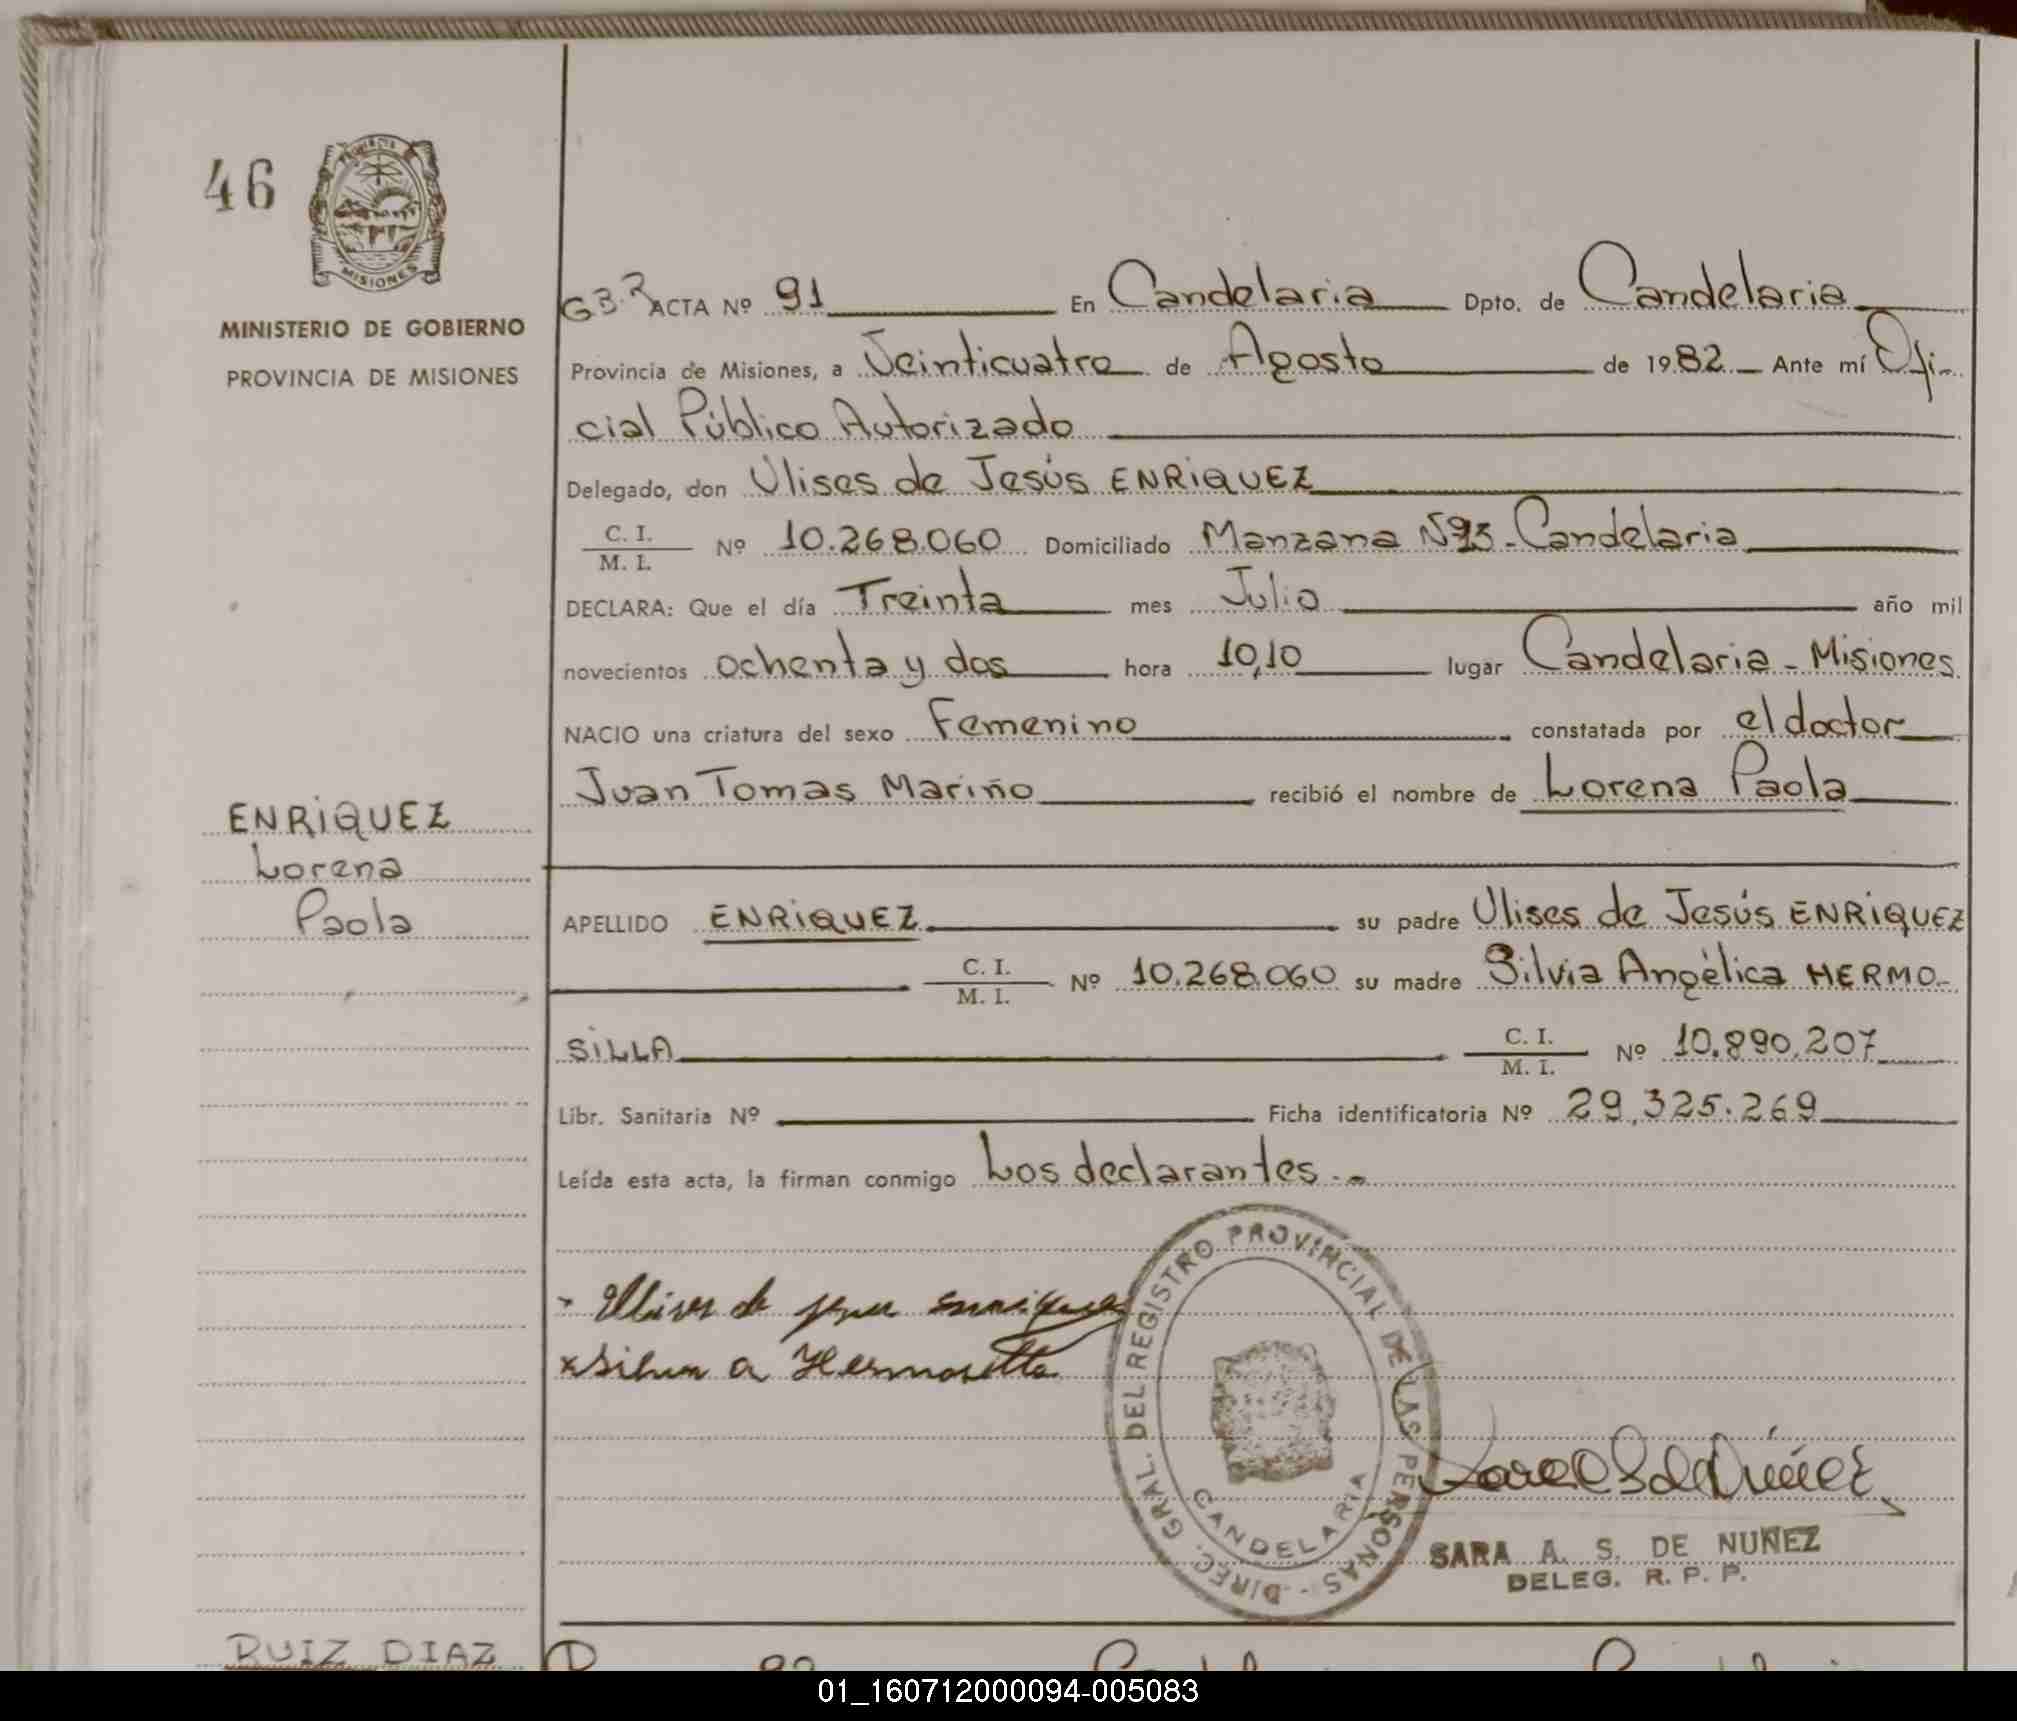 46
PROVINCIA DE
MISIONES
MINISTERIO DE GOBIERNO
PROVINCIA DE MISIONES
ENRIQUEZ
Lorena
Paola
RUIZ DIAZ
ACTA Nº 91 En Candelaria Dpto. de Candelaria
Provincia de Misiones, a Veinticuatro de Agosto de 1982 Ante mí Ofi-
cial Público Autorizado
Delegado, don Ulises de Jesús ENRIQUEZ
C. I.
M. I. Nº 10.268.060 Domiciliado Manzana Nº - Candelaria
DECLARA: Que el día Treinta mes Julio año mil
novecientos ochenta y dos hora 10,10 lugar Candelaria - Misiones
NACIO una criatura del sexo Femenino constatada por el doctor
Juan Tomas Mariño recibió el nombre de Lorena Paola
APELLIDO ENRIQUEZ su padre Ulises de Jesús ENRIQUEZ
C. I.
M. I. Nº 10.268.060 su madre Silvia Angélica HERMO-
SILLA C. I.
M. I. Nº 10.890.207
Libr. Sanitaria Nº Ficha identificatoria Nº 29.325.269
Leída esta acta, la firman conmigo Los declarantes.-
Ulises de jesus enriquez
x Silvia a Hermosilla
DIREC. GRAL. DEL REGISTRO PROVINCIAL DE LAS PERSONAS -
CANDELARIA
SARA A. S. DE NUÑEZ
DELEG. R. P. P.
01_160712000094-005083